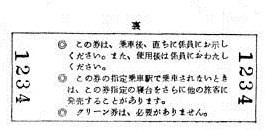 裏
◎ この券は、乗車後、直ちに係員にお示し
ください。また、使用後は係員におわたし
ください。
◎ この券の指定乗車駅で乗車されないとき
は、この券指定の寝台をさらに他の旅客に
発売することがあります。
◎ グリーン券は、必要がありません。
1234
1234